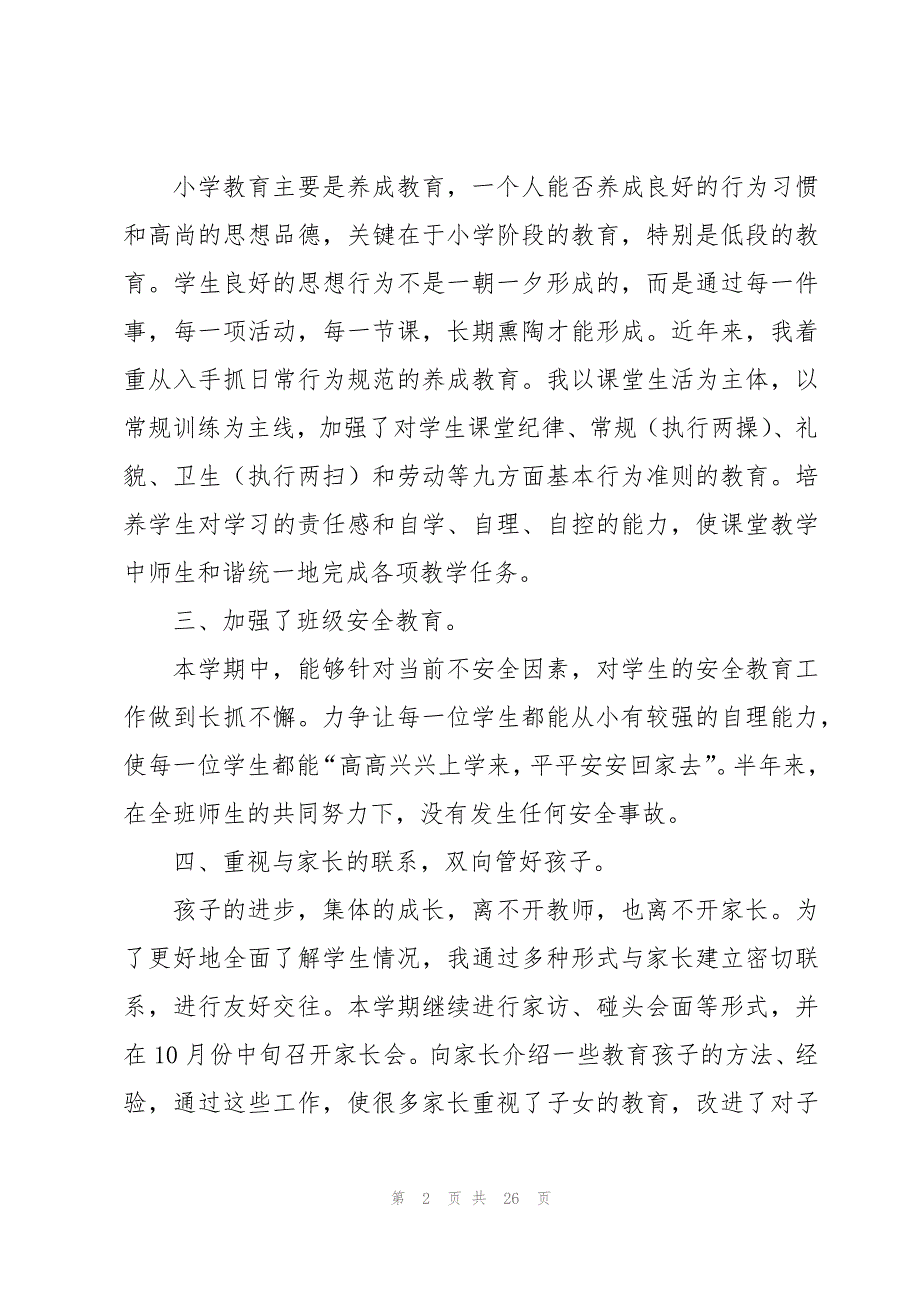 小学教育主要是养成教育，一个人能否养成良好的行为习惯
和高尚的思想品德，关键在于小学阶段的教育，特别是低段的教
育。学生良好的思想行为不是一朝一夕形成的，而是通过每一件
事，每一项活动，每一节课，长期熏陶才能形成。近年来，我着
重从入手抓日常行为规范的养成教育。我以课堂生活为主体，以
常规训练为主线，加强了对学生课堂纪律、常规（执行两操）、礼
貌、卫生（执行两扫）和劳动等九方面基本行为准则的教育。培
养学生对学习的责任感和自学、自理、自控的能力，使课堂教学
中师生和谐统一地完成各项教学任务。
三、加强了班级安全教育。
本学期中，能够针对当前不安全因素，对学生的安全教育工
作做到长抓不懈。力争让每一位学生都能从小有较强的自理能力，
使每一位学生都能“高高兴兴上学来，平平安安回家去”。半年来，
在全班师生的共同努力下，没有发生任何安全事故。
四、重视与家长的联系，双向管好孩子。
孩子的进步，集体的成长，离不开教师，也离不开家长。为
了更好地全面了解学生情况，我通过多种形式与家长建立密切联
系，进行友好交往。本学期继续进行家访、碰头会面等形式，并
在 10 月份中旬召开家长会。向家长介绍一些教育孩子的方法、经
验，通过这些工作，使很多家长重视了子女的教育，改进了对子
第 2 页 共 26 页